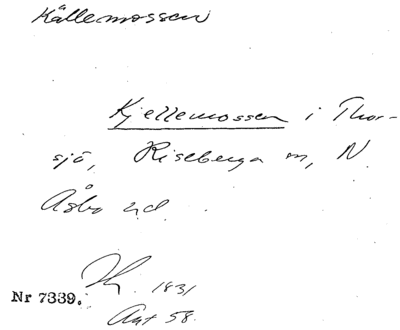 Källemossen
Kjellemossen i Thor-
sjö, Riseberga sn, N
Åsbo hd.
1831
Nr 7339.
Akt 58.